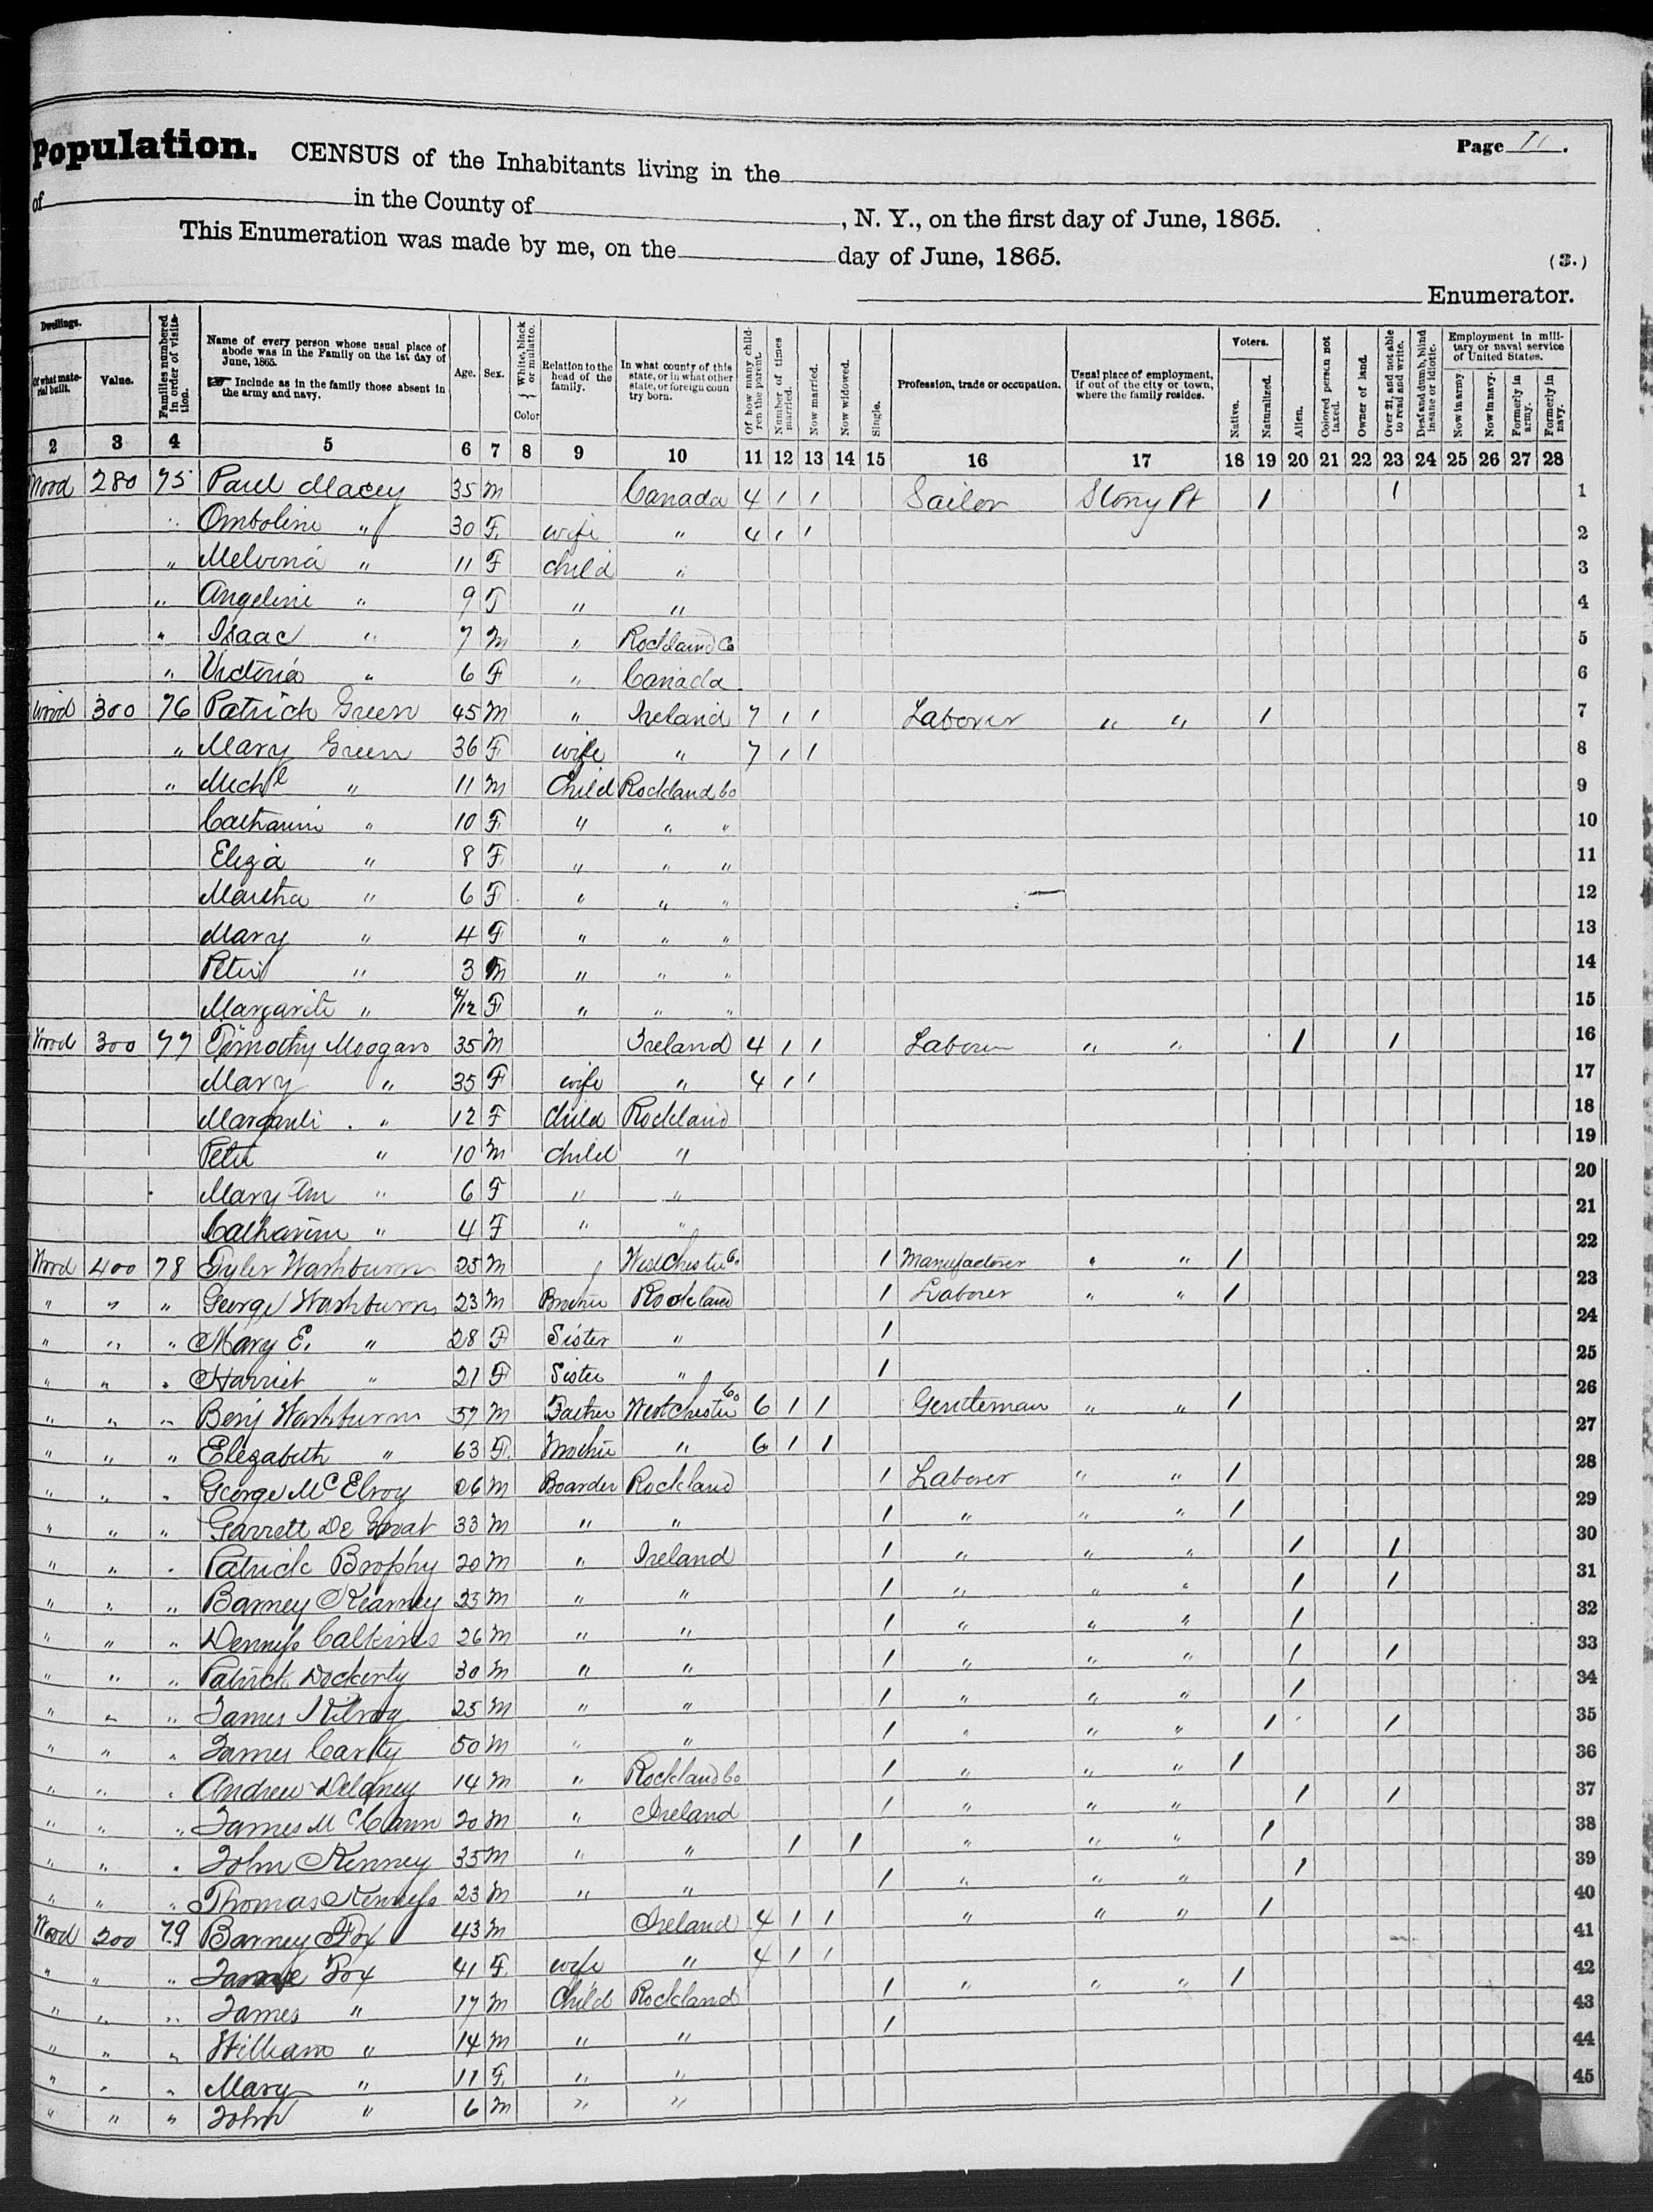 Population. CENSUS of the Inhabitants living in the
Page 11.
of in the County of , N. Y., on the first day of June, 1865.
This Enumeration was made by me, on the day of June, 1865.
(3.)
Enumerator.
Dwellings. Of what material built. Value. Families numbered in order of visitation. Name of every person whose usual place of abode was in the Family on the 1st day of June, 1865. Include as in the family those absent in the army and navy. Age. Sex. White, black or mulatto. Color Relation to the head of the family. In what county of this state, or in what other state, or foreign country born. Of how many children the parent. Number of times married. Now married. Now widowed. Single. Profession, trade or occupation. Usual place of employment, if out of the city or town, where the family resides. Voters. Native. Naturalized. Alien. Colored person not taxed. Owner of land. Over 21, and not able to read and write. Deaf and dumb, blind insane or idiotic. Employment in military or naval service of United States. Now in army. Now in navy. Formerly in army. Formerly in navy.
2 3 4 5 6 7 8 9 10 11 12 13 14 15 16 17 18 19 20 21 22 23 24 25 26 27 28
Wood 280 75 Paul Macey 35 M Canada 4 1 1 Sailor Stony Pt 1 1 1
Omboline " 30 F. wife " 4 1 1 2
" Melvina " 11 F child " 3
" Angeline " 9 F " " 4
" Isaac " 7 M " Rockland Co 5
" Victoria " 6 F " Canada 6
Wood 300 76 Patrick Green 45 M " Ireland 7 1 1 Laborer " " 1 7
" Mary Green 36 F wife " 7 1 1 8
" Michl " 11 M Child Rockland Co 9
Catharin " 10 F " " " 10
Eliza " 8 F " " " 11
Martha " 6 F " " " 12
Mary " 4 F " " " 13
Peter " 3 M " " " 14
Margarite " /12 F " " " 15
Wood 300 77 Timothy Moogan 35 M Ireland 4 1 1 Laborer " " 1 1 16
Mary " 35 F wife " 4 1 1 17
" 12 F child Rockland 18
Peter " 10 M child " 19
Mary Ann " 6 F " " 20
Catharine " 4 F " " 21
Wood 400 78 Tyler Washburn 25 M Westchester Co. 1 Manufacturer " " 1 22
" " " George Washburn 23 M Brother Rockland 1 Laborer " " 1 23
" " " Mary E. " 28 F Sister " 1 24
" " " Harriet " 21 F Sister " 1 25
" " " Benj Washburn 57 M Father Westchester Co 6 1 1 Gentleman " " 1 26
" " " Elizabeth " 63 F. Mother " 6 1 1 27
" " " George McElroy 26 M Boarder Rockland 1 Laborer " " 1 28
" " " Garrett De 33 M " " 1 " " " 1 29
" " " Patrick Brophy 20 M " Ireland 1 " " " 1 1 30
" " " Barney Kearney 23 M " " 1 " " " 1 1 31
" " " Dennis Calkins 26 M " " 1 " " " 1 32
" " " Patrick Dockerty 30 M " " 1 " " " 1 1 33
" " " James Kilroy 25 M " " 1 " " " 1 34
" " " James Carty 50 M " " 1 " " " 1 1 35
" " " Andrew Delaney 14 M " Rockland Co 1 " " " 1 36
" " " James McCann 20 M " Ireland 1 " " " 1 1 37
" " " John Kenney 35 M " " 1 1 " " " 1 38
" " " Thomas 23 M " " 1 " " " 1 39
Wood 200 79 Barney Fox 43 M Ireland 4 1 1 " " " 1 40
" " " Fox 41 F. wife " 4 1 1 41
" " " James " 17 M Child Rockland 1 " " " 1 42
" " " William " 14 M " " 1 43
" " " Mary " 11 F. " " 44
" " " John " 6 M " " 45